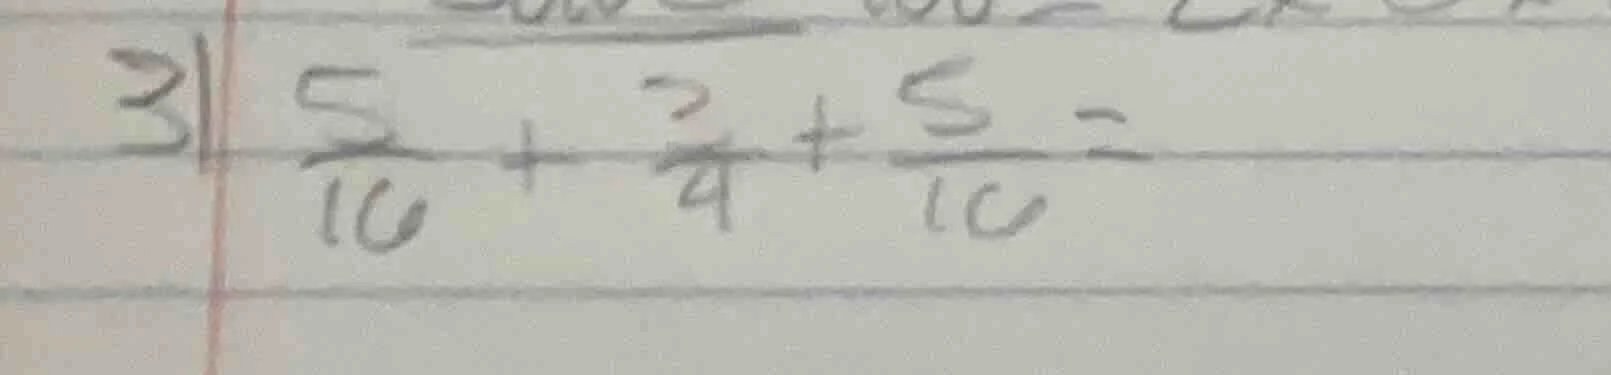 3) 5/16 + 3/4 + 5/16 =